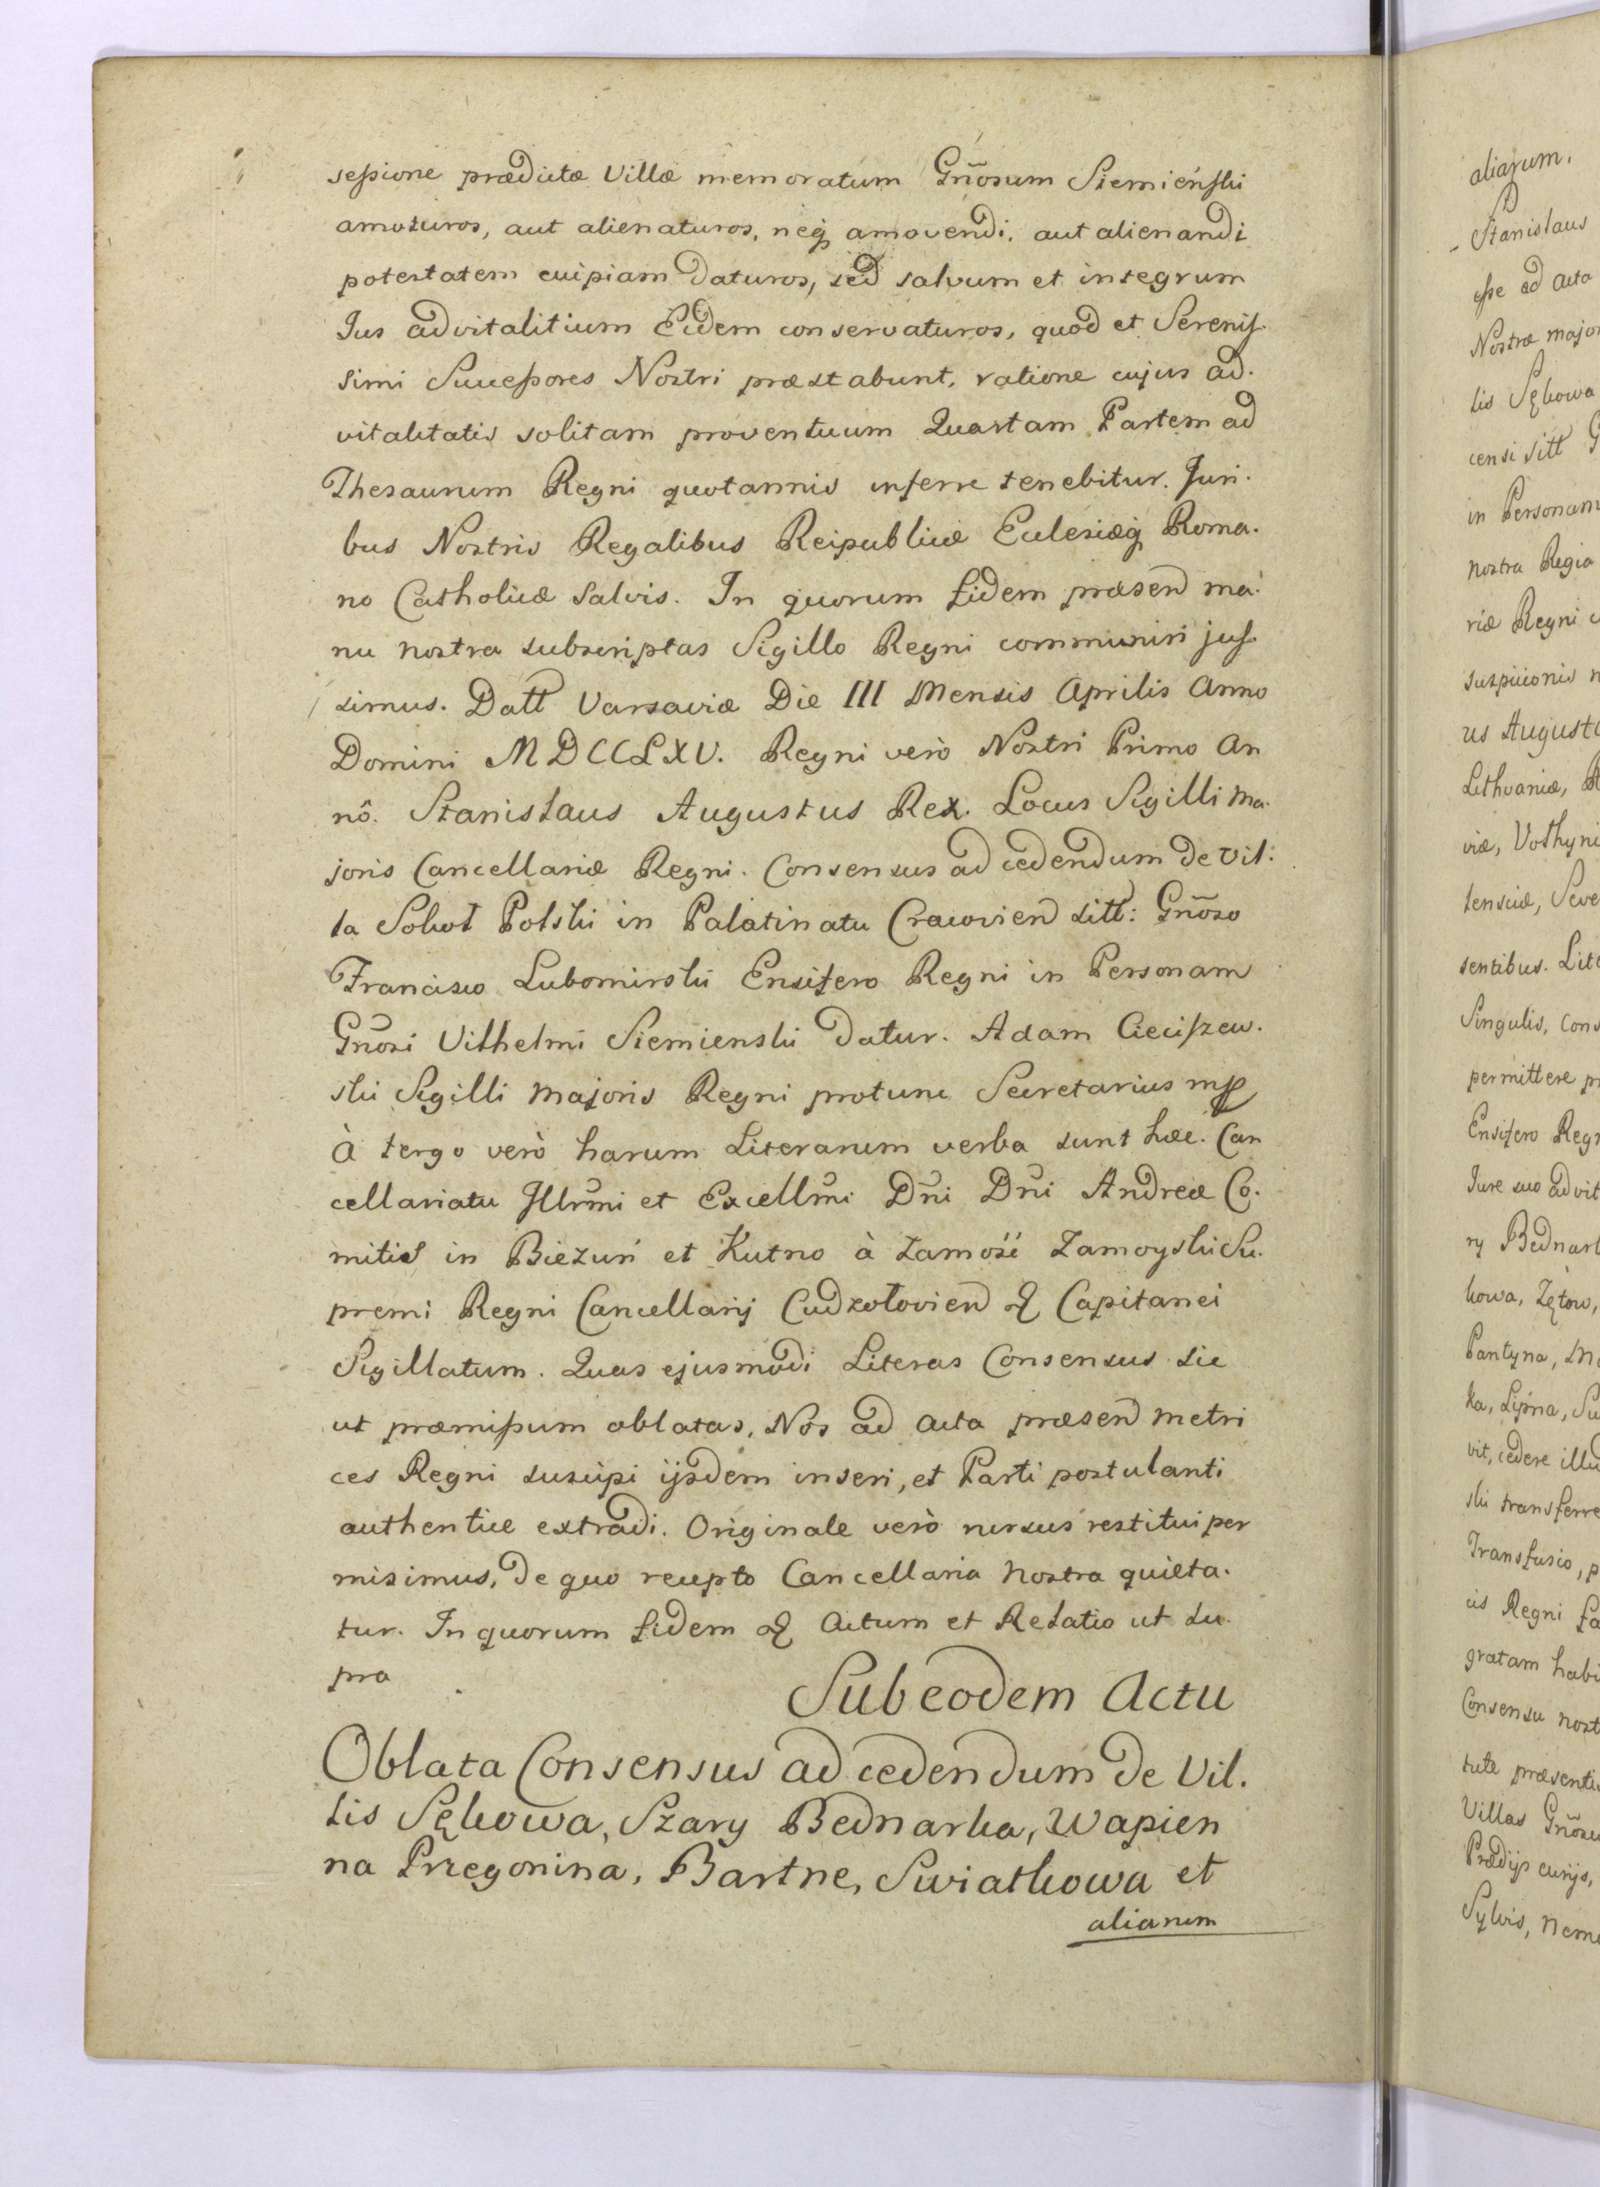 sessione prædictæ Villæ memoratum Gñosum Siemieński
amoturos, aut alienaturos, neq amovendi, aut alienandi
potestatem cuipiam daturos, sed salvum et integrum
Jus advitalitium Eidem conservaturos, quod et Serenis-
simi Successores Nostri præstabunt, ratione cujus ad-
vitalitatis solitam proventuum Quartam Partem ad
Thesaurum Regni quotannis inferre tenebitur. Juri-
bus Nostris Regalibus Reipublicæ Eclesiæq Roma-
no Catholicæ Salvis. In quorum fidem præsend ma-
nu nostra subscriptas Sigillo Regni communiri jus-
simus. Datt Varsaviæ Die III Mensis Aprilis Anno
Domini MDCCLXV. Regni verò Nostri Primo An
nô. Stanislaus Augustus Rex. Locus Sigilli Ma-
joris Cancellariæ Regni. Consensus ad cedendum de Vil-
la Sokoł Polski in Palatinatu Cracoviend sitt: Gñoso
Francisco Lubomirski Ensifero Regni in Personam
Gñosi Vilhelmi Siemienski datur. Adam Cieciszew-
ski Sigilli Majoris Regni protunc Secretarius mp
à tergo verò harum Literarum verba sunt hæc. Can
cellariatu Illrmi et Excellmi Dñi Dñi Andreæ Co-
mitis in Bieżuń et Kutno à Zamość Zamoyski Su-
premi Regni Cancellarij Cudzołoviend & Capitanei
Sigillatum. Quas ejusmodi Literas Consensus sic
ut præmissum oblatas, Nos ad Acta præsend Metri
ces Regni suscipi ijsdem inseri, et Parti postulanti
authentice extradi. Originale verò rursus restitui per
misimus, de quo recepto Cancellaria Nostra quieta-
tur. In quorum fidem & Actum et Relatio ut su-
pra
Sub eodem Actu
Oblata Consensus ad cedendum de Vil-
lis Sękowa, Szary Bednarka, Wapien
na Przegonina, Bartne, Swiatkowa et
aliarum
aliarum.
Stanislaus
esse ad Acta
Nostræ major
lis Sękowa
censi sitt G
in Personam
nostra Regia
riæ Regni
suspicionis
us Augustu
Lithvaniæ,
viæ, Volhyni
lensciæ, Seve
sentibus. Lite
Singulis, cons
permittere
Ensifero Regn
Jure suo advit
ry Bednark
kowa,
Pantyna,
ka, Lipna,
vit, cedere illu
ski transferre
Transfusio,
cis Regni
gratam habi
Consensu nost
tute præsentiu
Villas Gñosu
Prædijs curijs,
Sylvis, nemo